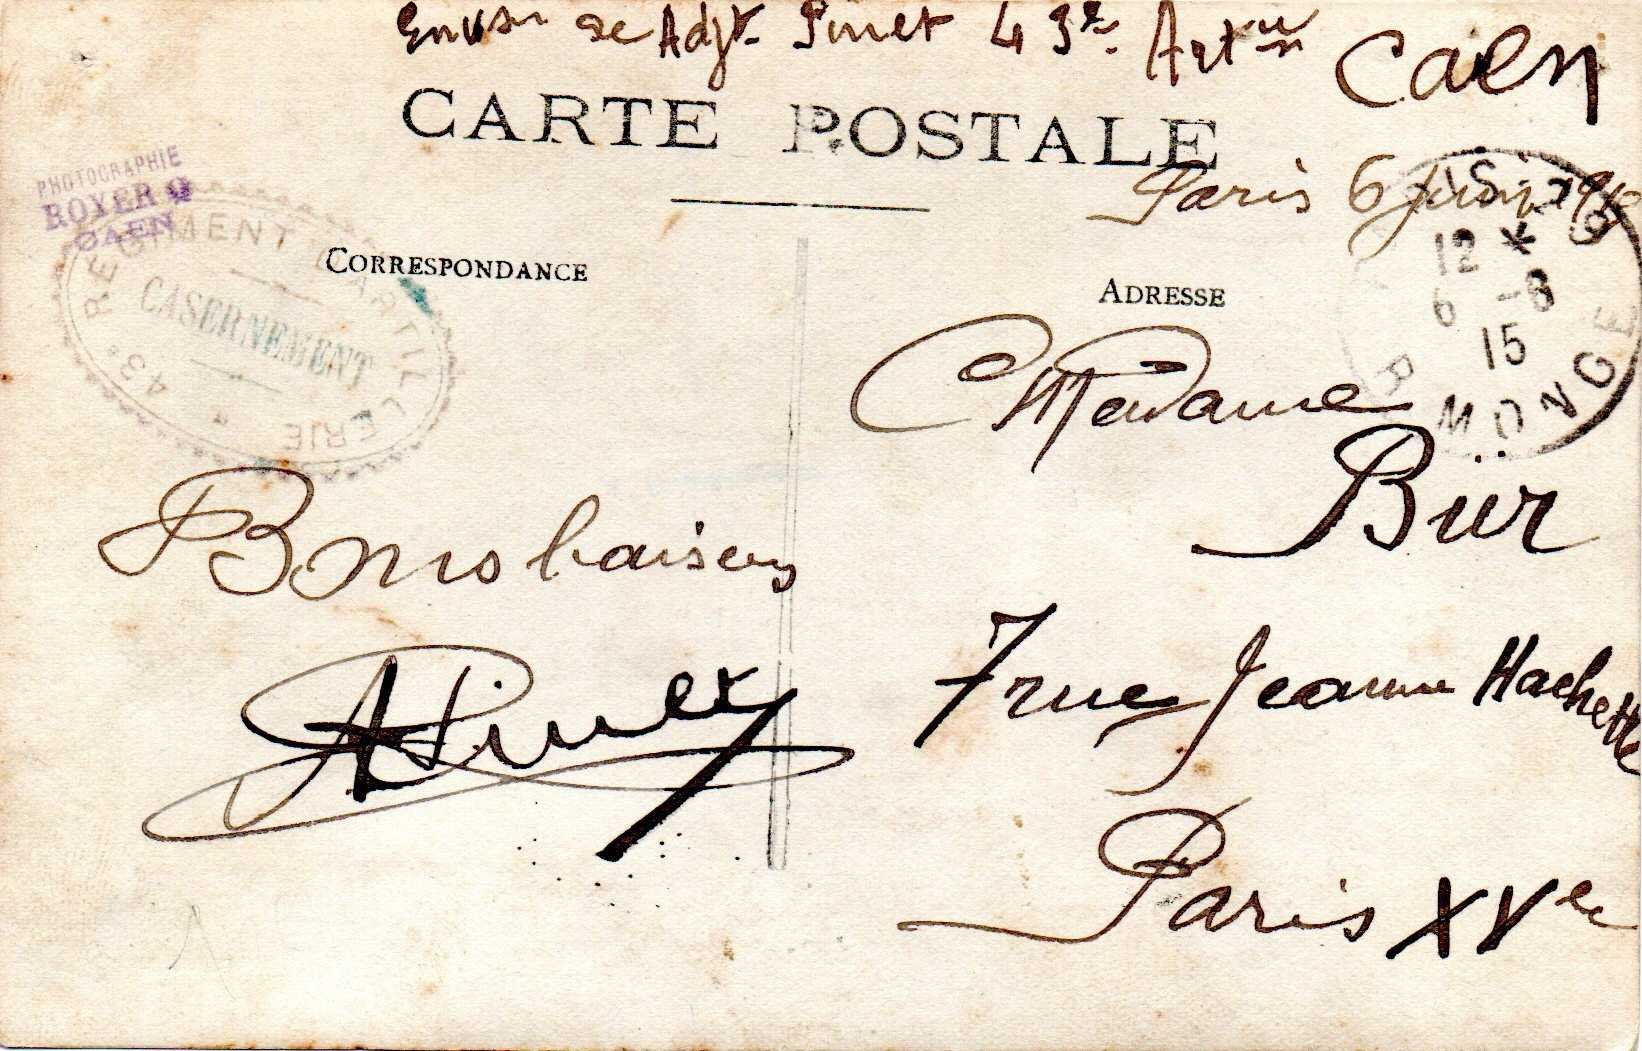 Envon de Adjt Pinet 43e Artrie Caen
CARTE POSTALE
Paris 6 juin
PHOTOGRAPHIE
ROYER
CAEN
43e REGIMENT D'ARTILLERIE
CASERNEMENT
CORRESPONDANCE
ADRESSE
PARIS
12 *
6 -6
15
R MONGE
Madame
Bür
Bons baisers
7 rue Jeanne Hachette
A Pinet
Paris XVe